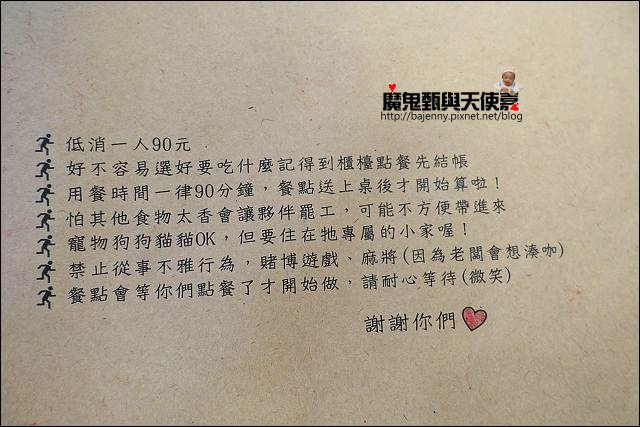 魔鬼甄與天使嘉
http://bajenny.pixnet.net/blog
低消一人90元
好不容易選好要吃什麼記得到櫃檯點餐先結帳
用餐時間一律90分鐘，餐點送上桌後才開始算啦！
怕其他食物太香會讓夥伴罷工，可能不方便帶進來
寵物狗狗貓貓OK，但要住在牠專屬的小家喔！
禁止從事不雅行為，賭博遊戲、麻將(因為老闆會想湊咖)
餐點會等你們點餐了才開始做，請耐心等待(微笑)
謝謝你們